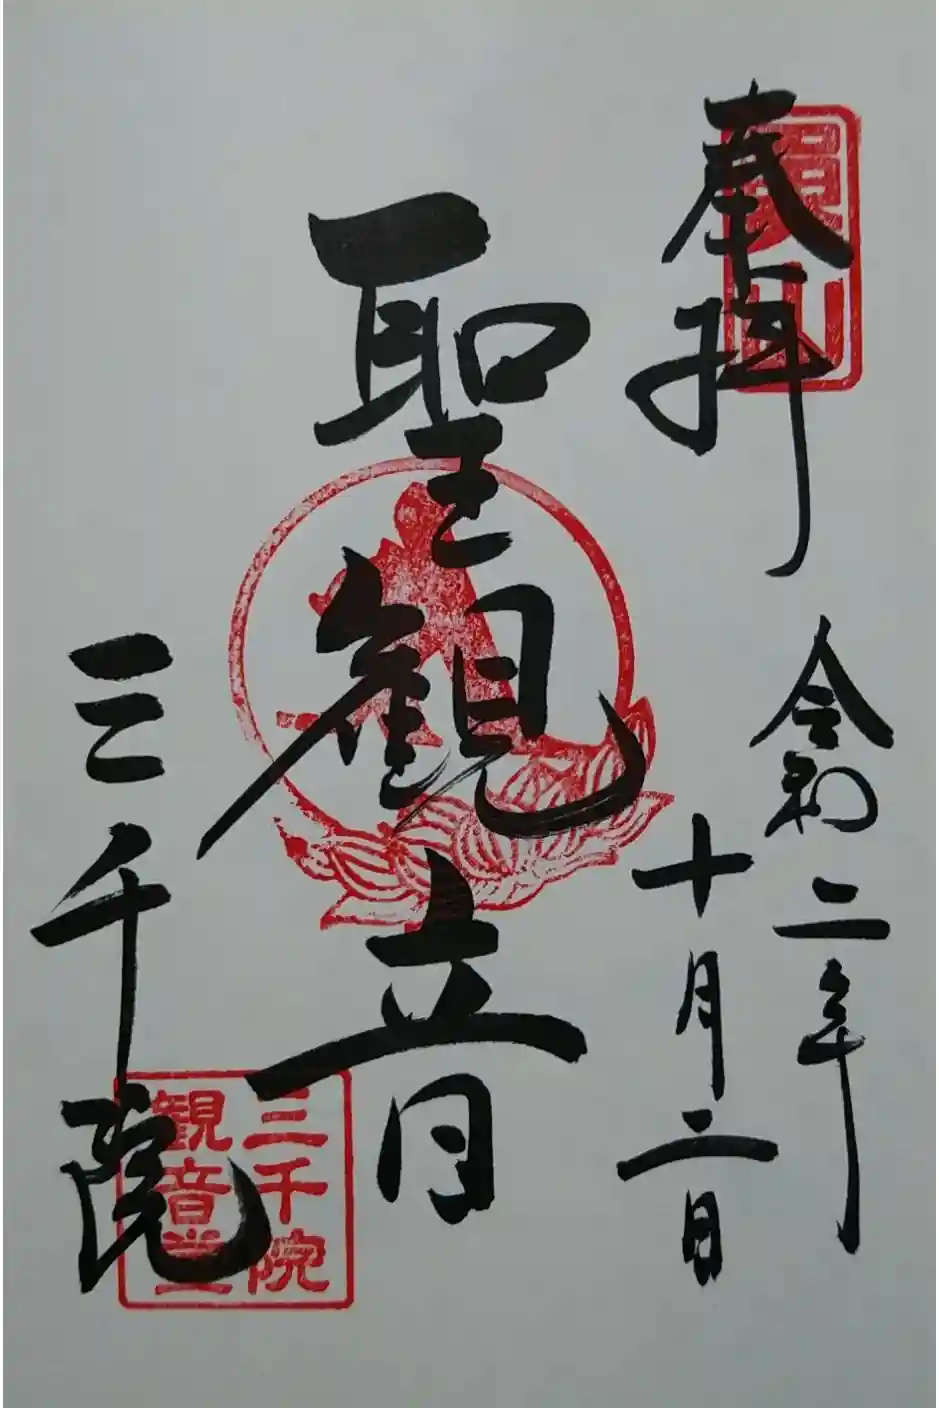 奉拝
令和二年
十月二日
聖観音
三千院
三千院
観音堂